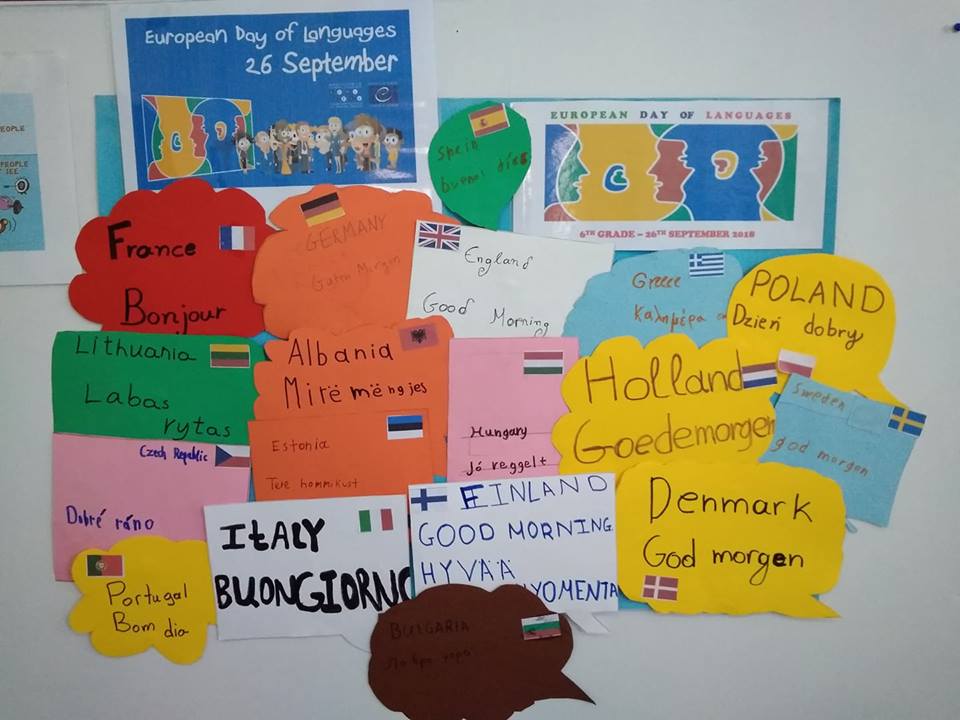 European Day of Languages
26 September
EUROPEAN DAY OF LANGUAGES
6TH GRADE – 26TH SEPTEMBER 2018
EOPLE
PEOPLE
Spein
buenos días
France
Bonjour
GERMANY
Guten Morgen
England
Good Morning
Greece
Καλημέρα
POLAND
Dzień dobry
Lithuania
Labas
rytas
Albania
Mirë mëngjes
Hungary
Jó reggelt
Holland
Goedemorgen
Sweden
god morgen
Czech Republic
Dobré ráno
Estonia
Tere hommikust
Portugal
Bom dia
ItALY
BUONGIORNO
FINLAND
GOOD MORNING
HYVÄÄ
YOMENTA
Denmark
God morgen
BULGARIA